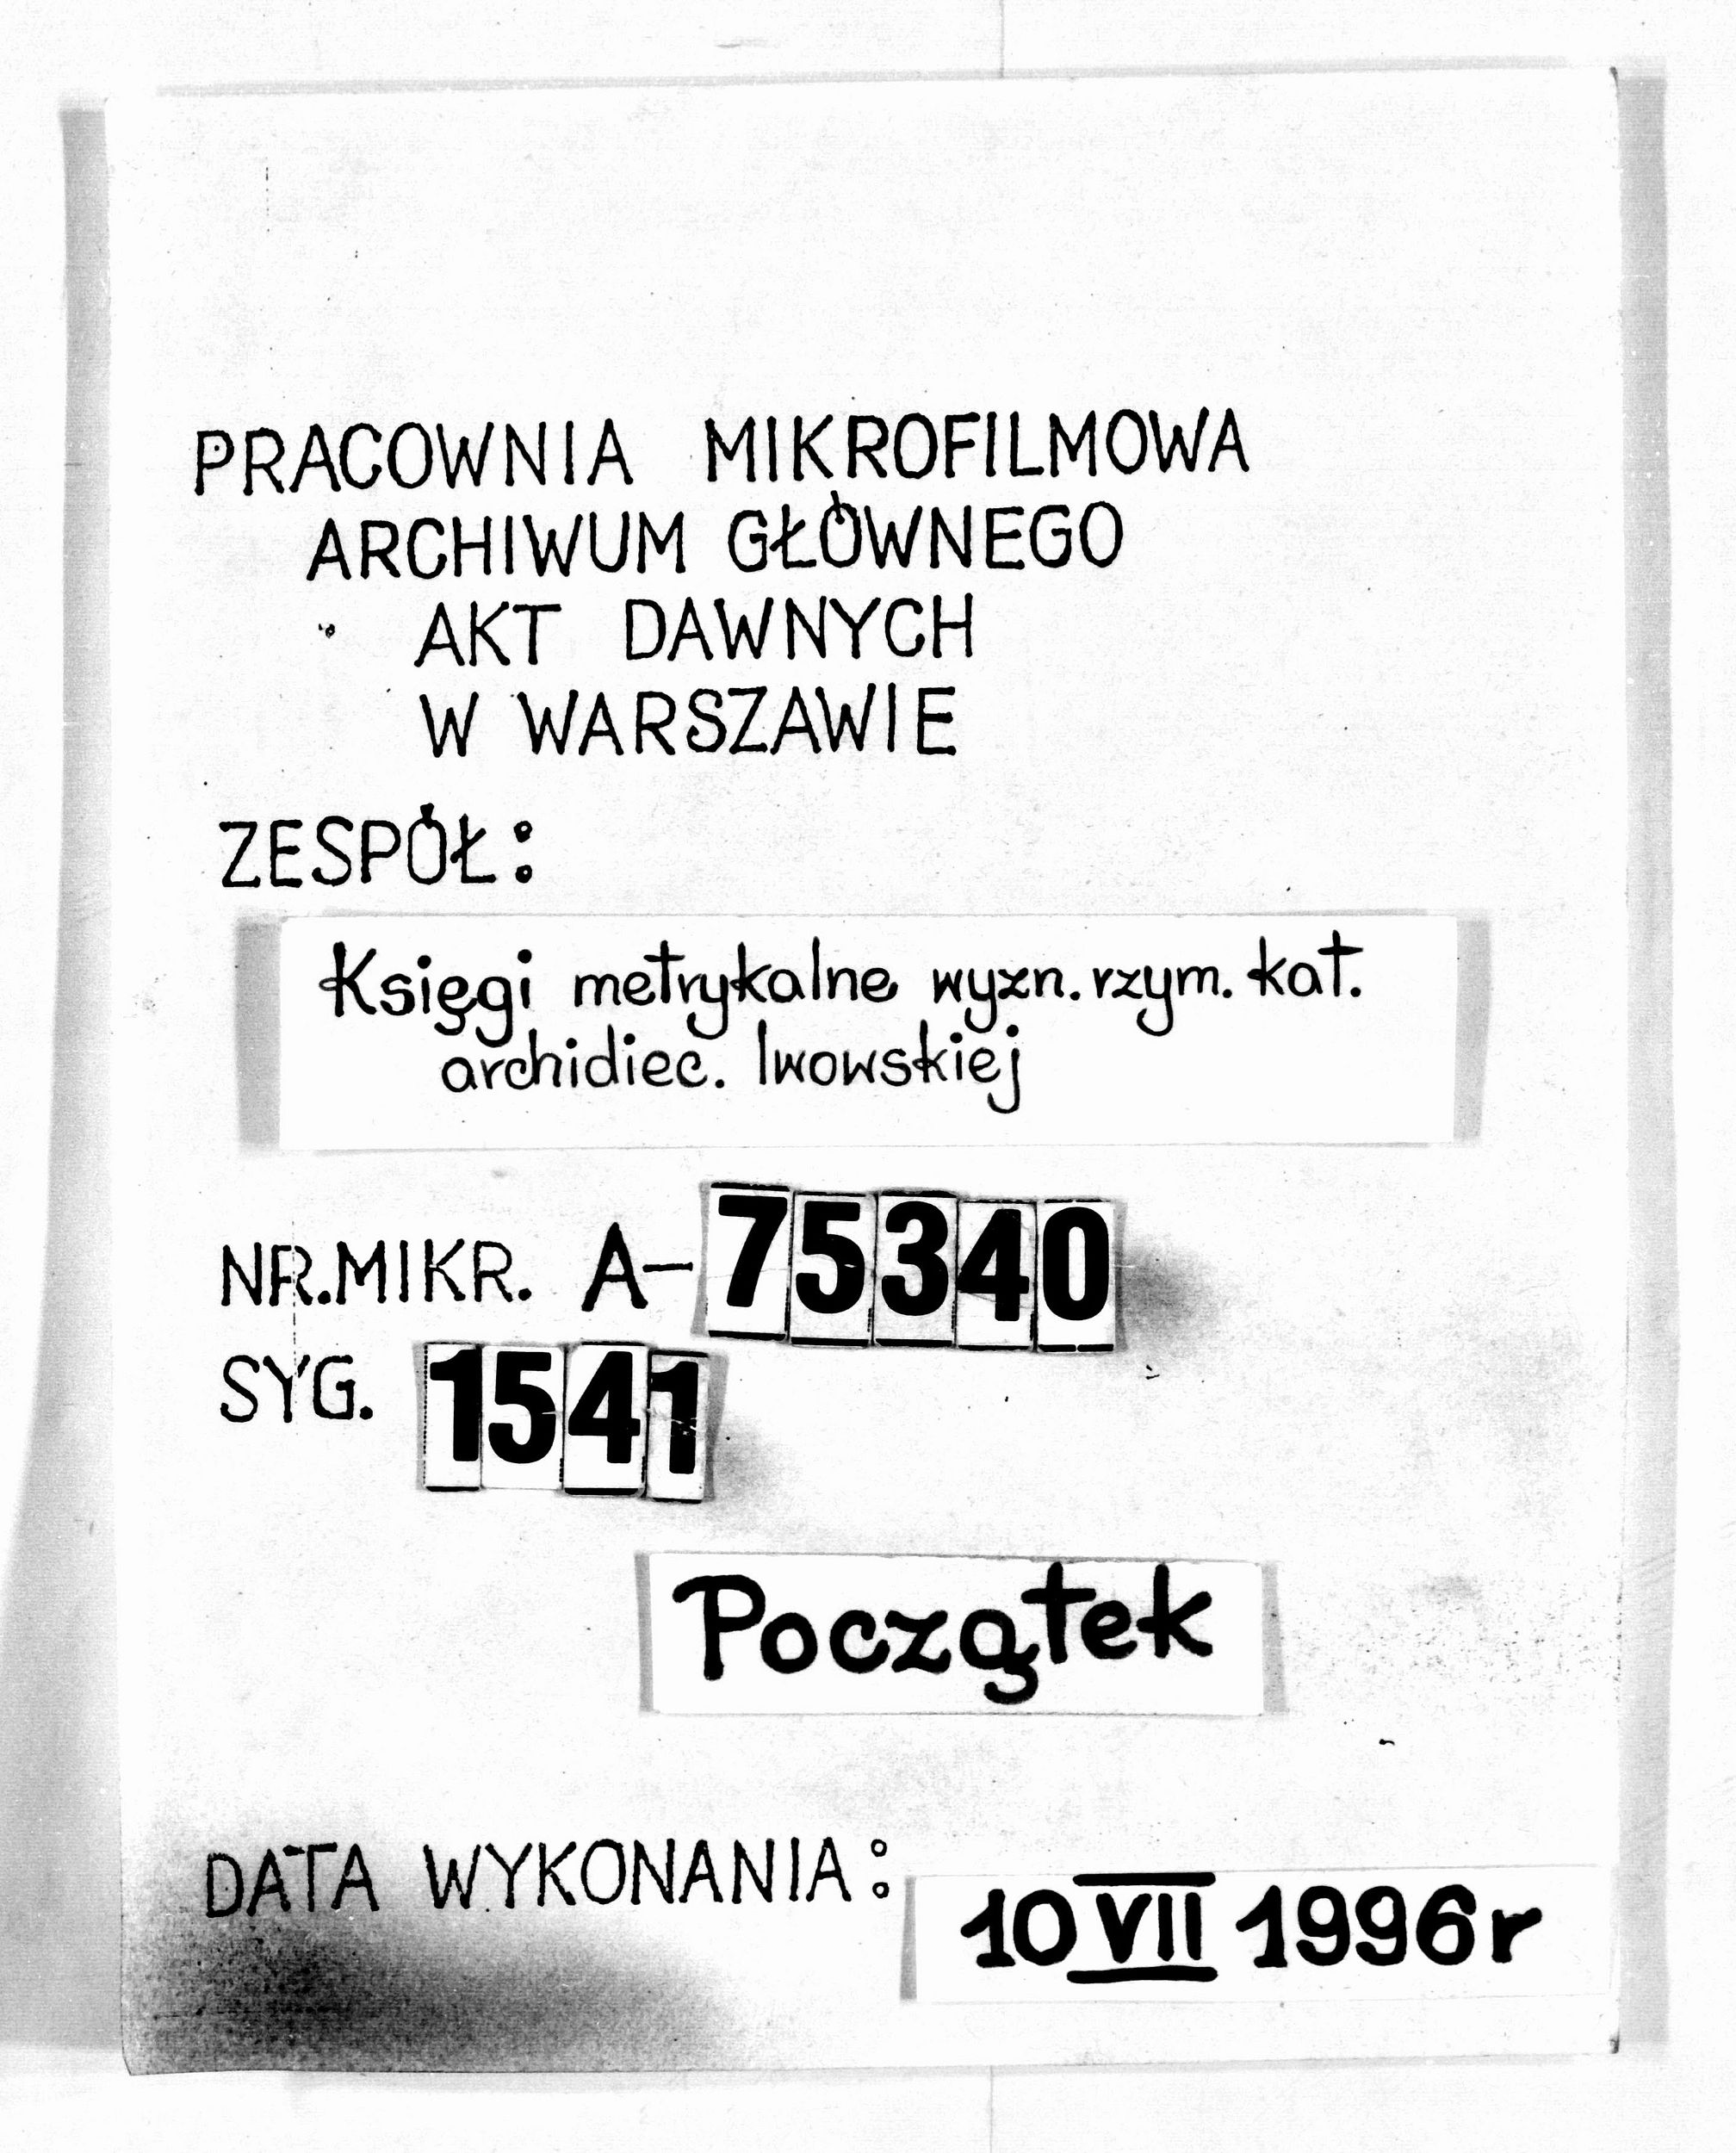 PRACOWNIA MIKROFILMOWA
ARCHIWUM GŁÓWNEGO
AKT DAWNYCH
W WARSZAWIE
ZESPÓŁ:
Księgi metrykalne wyzn. rzym. kat.
archidiec. lwowskiej
NR.MIKR. A-75340
SYG. 1541
Początek
DATA WYKONANIA: 10 VII 1996r